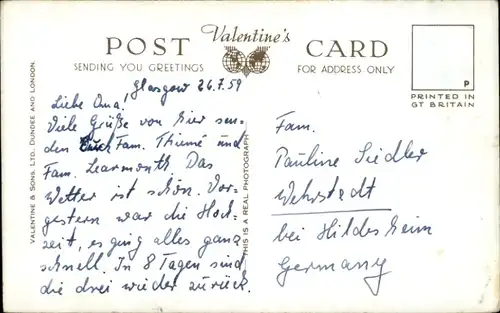 Valentine's
POST CARD
SENDING YOU GREETINGS
FOR ADDRESS ONLY
P
PRINTED IN
GT BRITAIN
VALENTINE & SONS. LTD. DUNDEE AND LONDON.
THIS IS A REAL PHOTOGRAPH
Glasgow 26.7.59
Liebe Oma!
Viele Grüße von hier sen-
den Euch Fam. Thieme und
Fam. Learmonth. Das
Wetter ist schön. Vor-
gestern war die Hoch-
zeit, es ging alles ganz
schnell. In 8 Tagen sind
die drei wieder zurück.
Fam.
Pauline Siedler
Wehrstedt
bei Hildesheim
Germany